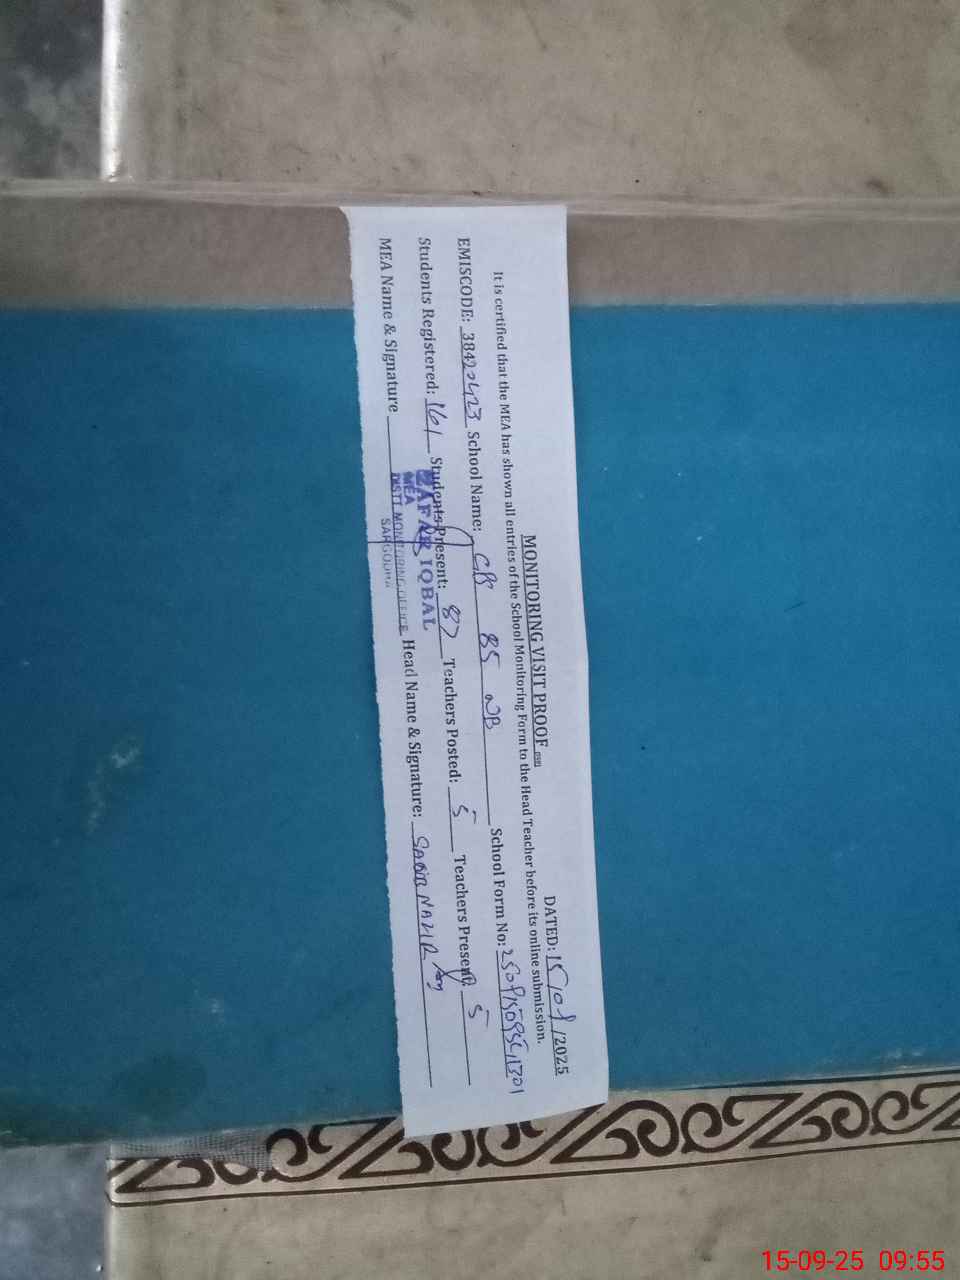 MONITORING VISIT PROOF
DATED: 15/09/2025
It is certified that the MEA has shown all entries of the School Monitoring Form to the Head Teacher before its online submission.
EMISCODE: 38420423 School Name: 85 NB School Form No:
Students Registered: 161 Students Present: 87 Teachers Posted: 5 Teachers Present: 5
MEA Name & Signature Head Name & Signature: NAZIR
ZAFAR IQBAL
MEA
DISTT MONITORING OFFICE
SARGODHA
15-09-25 09:55